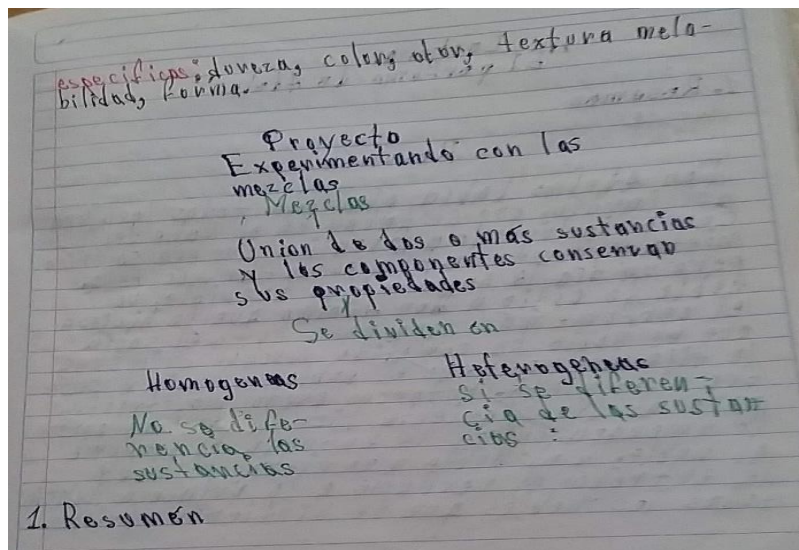 específicas: dureza, color, olor, textura mela-
bilidad, forma.
Proyecto
Experimentando con las
mezclas
Mezclas
Union de dos o más sustancias
y los componentes conservan
sus propiedades
Se dividen en
Homogeneas
Heterogeneas
No se dife-
rencia las
sustancias
si se diferen-
cia de las sustan
cias :
1. Resumén